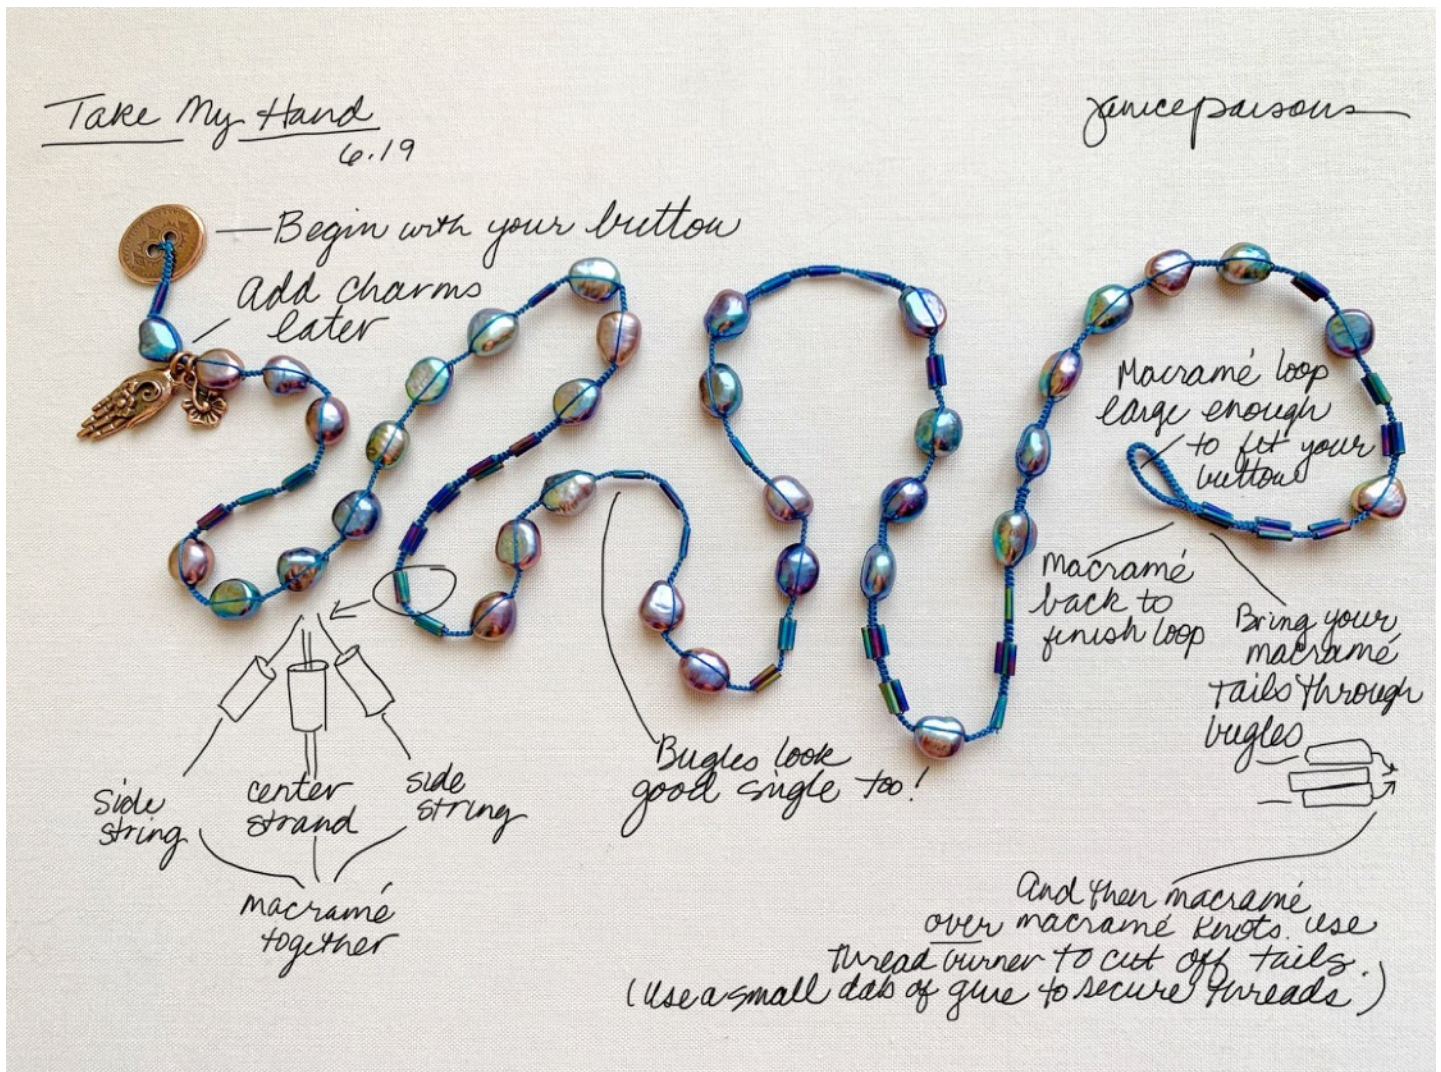 Take My Hand
6.19
janiceparsons
Begin with your button
Add charms
later
Macramé loop
large enough
to fit your
button
Macramé
back to
finish loop
Bring your
macramé
tails through
bugles
Bugles look
good single too!
side
string
center
strand
side
string
macramé
together
And then macramé
over macramé knots. Use
thread burner to cut off tails.
(Use a small dab of glue to secure threads.)